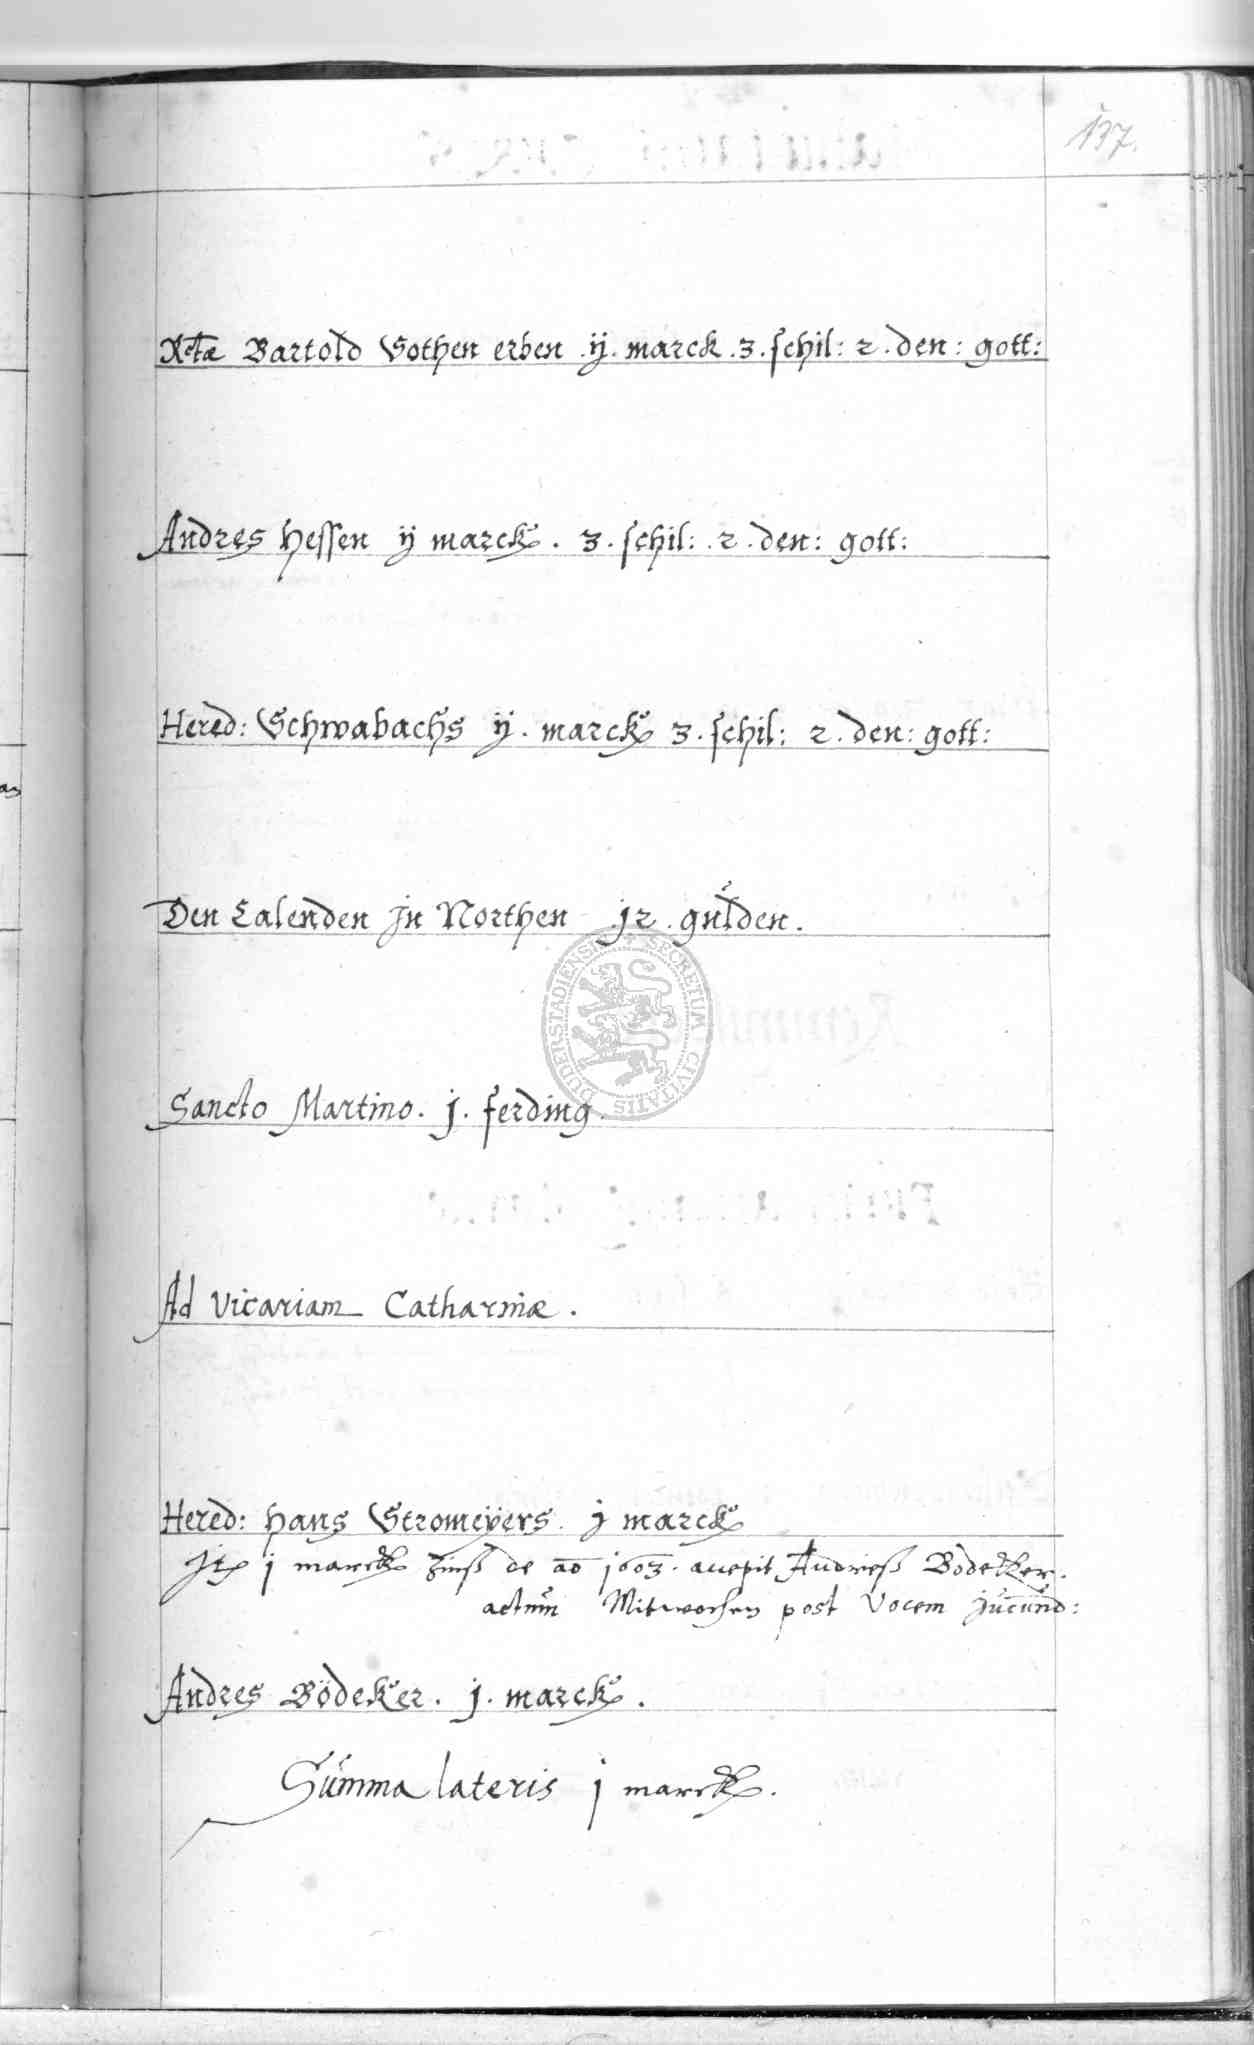 137.
Bartold Gothen erben .ÿ. marck .3. schil: 2. den: gott:
Andres Hessen ÿ marck. 3. schil: .2. den: gott:
Hered: Schwabachs ÿ. marck 3. schil: 2. den: gott:
Den Calenden jn Northen j2. gulden.
DUDERSTADIENSIS + SECRETUM CIVITATIS
Sancto Martino. j. ferding.
Ad vicariam Catharinæ.
Hered: Hans Stromeÿers. j marck
Itm j marck zinß de ao 1603. accepit Andreß Bodecker.
actum Mitwochen post Vocem jucund:
Andres Bödeker. j. marck.
Summa lateris j marck.